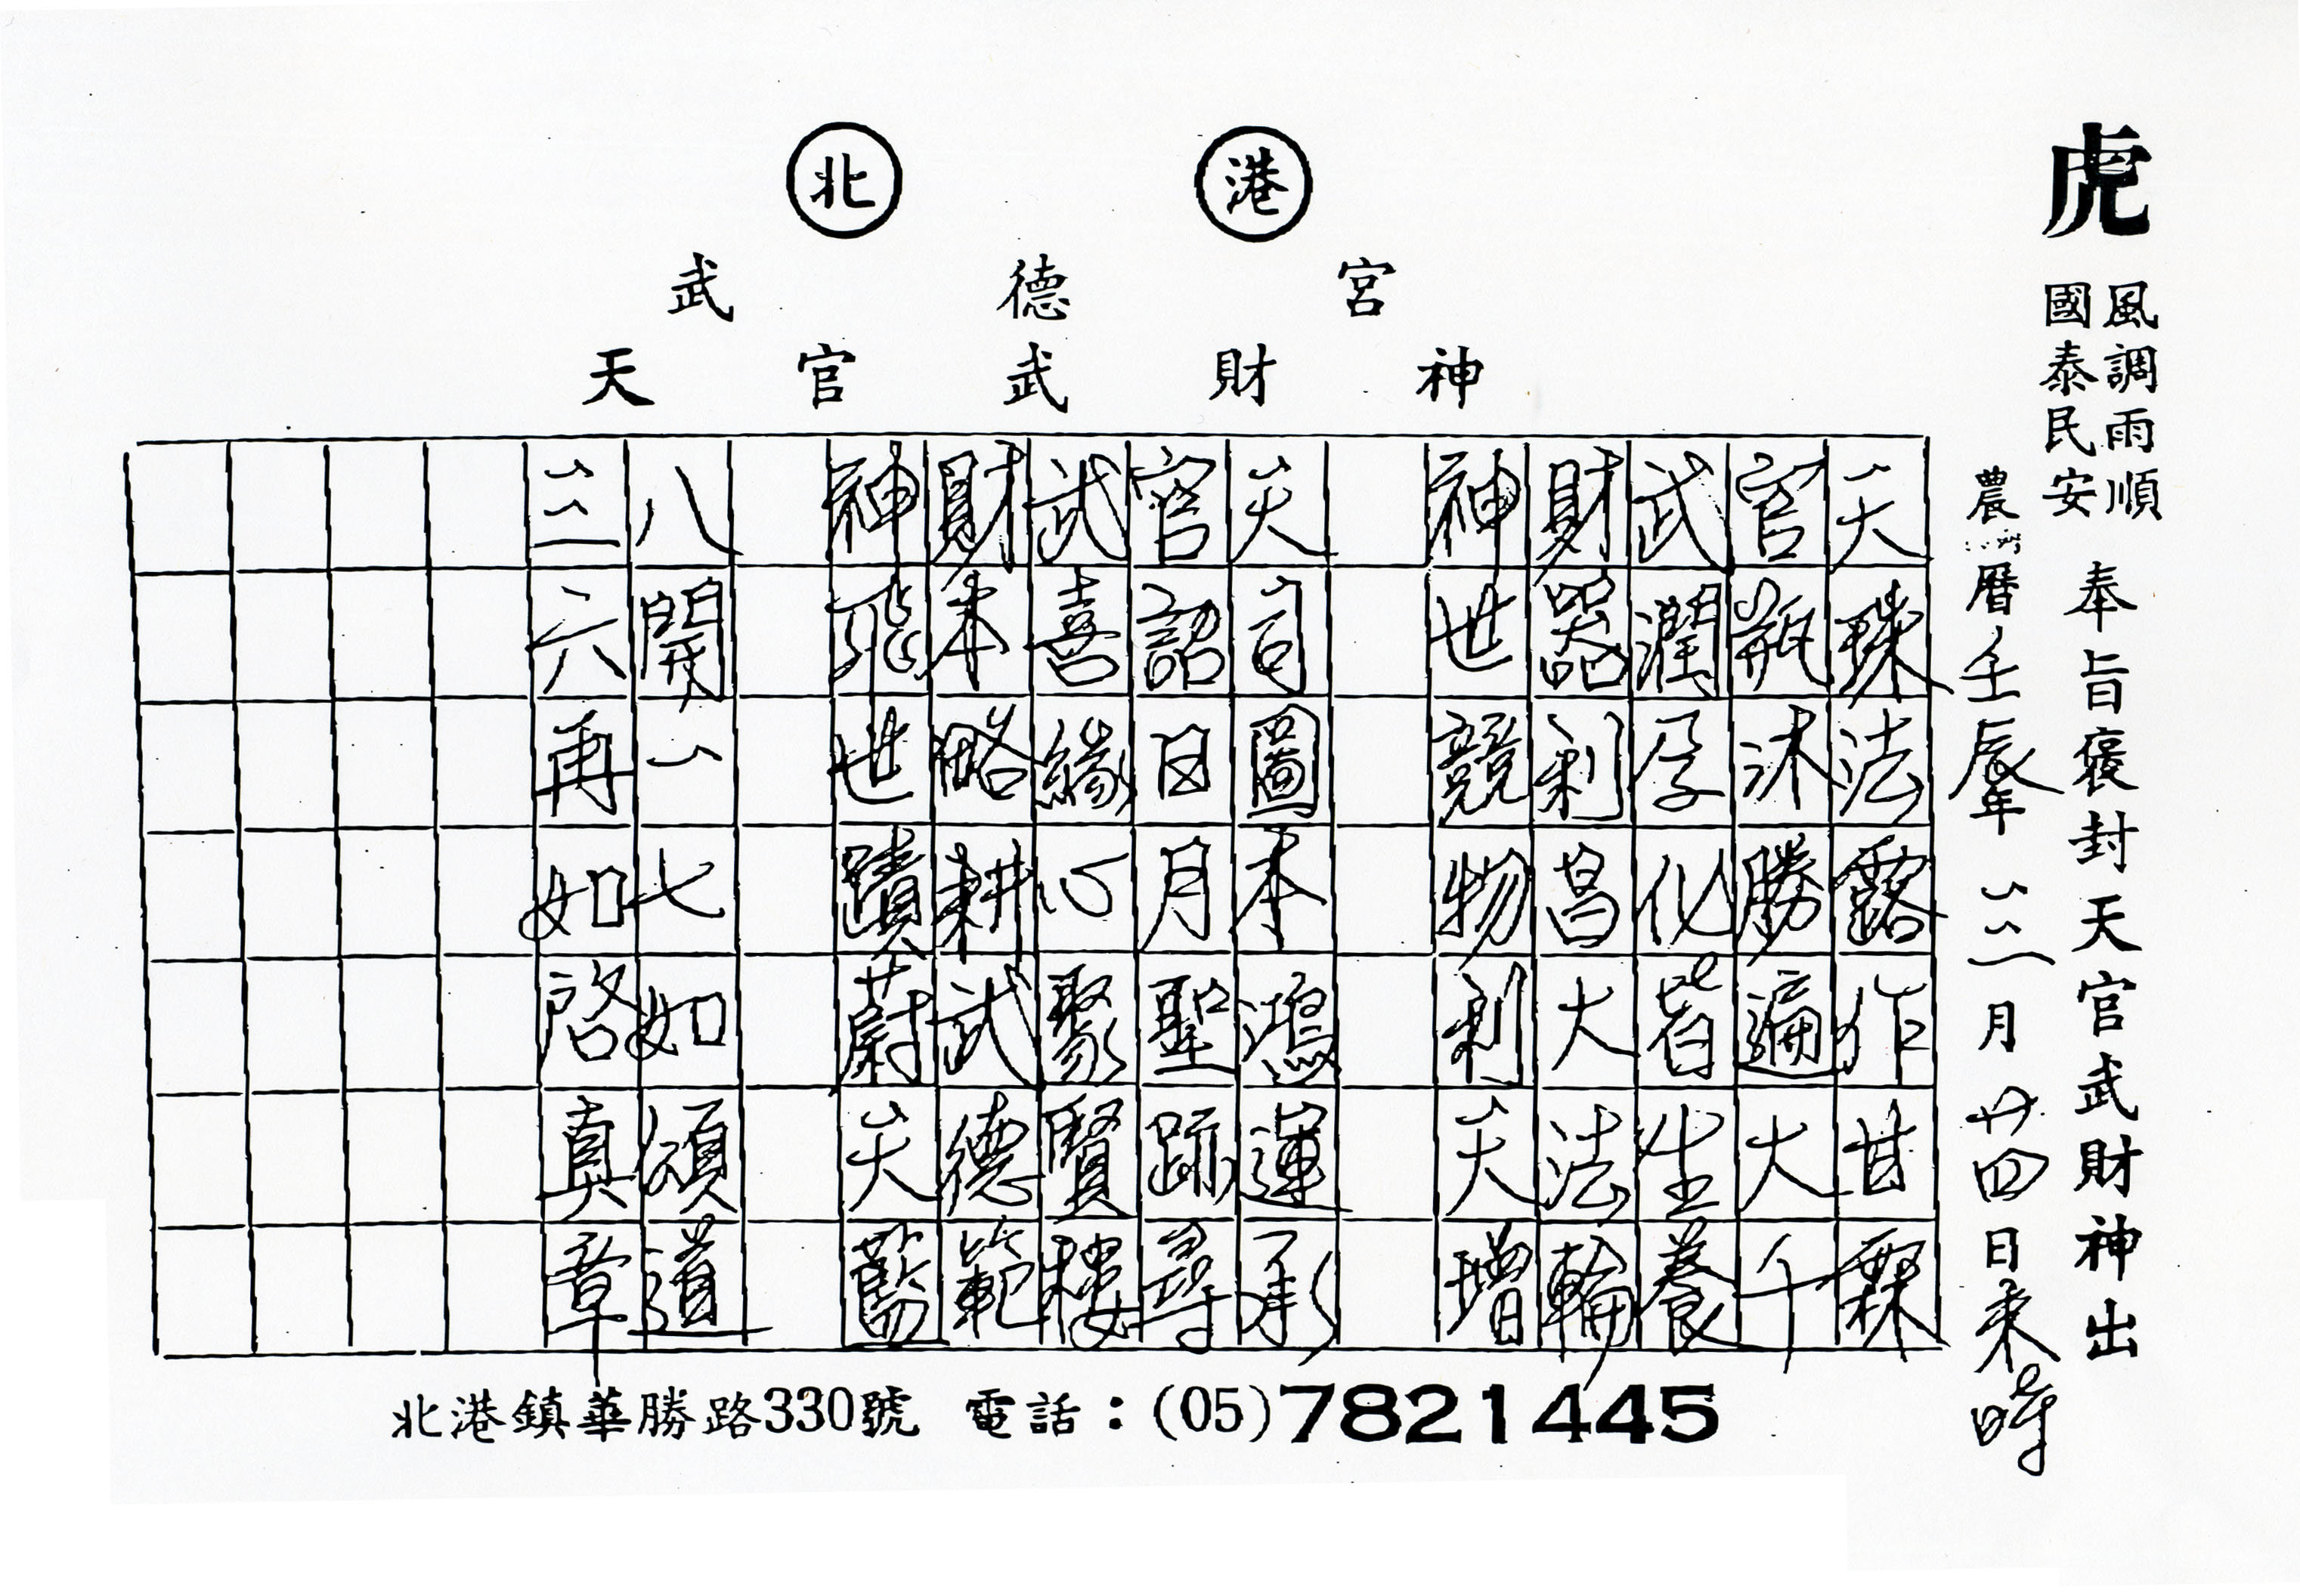 虎
風調雨順
國泰民安
奉旨褒封天官武財神出
農曆壬辰年三月廿四日未時
北港
武德宮
天官武財神
天珠法露作甘霖
官瓶沐勝遍大千
武潤孕化眾生養
財器利昌大法輪
神世競物利天增
天司圖本鴻運承
官詔日月聖跡尋
武喜緣心聚賢樓
財本略耕武德範
神飛世蹟蔚天藍
八開一七如頌道
三六再如啓真章
北港鎮華勝路330號 電話：(05)7821445